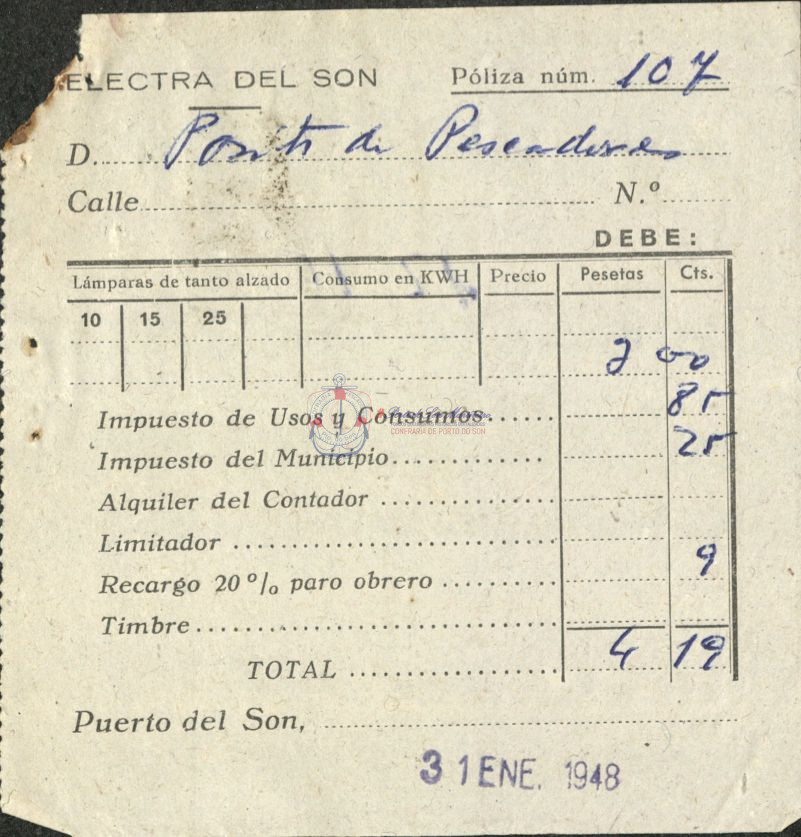 ELECTRA DEL SON Póliza núm. 107
D. Posito de Pescadores
Calle N.º
DEBE:
Lámparas de tanto alzado Consumo en KWH Precio Pesetas Cts.
10 15 25
3 00
Impuesto de Usos y Consumos 85
CONFRARÍA DE PORTO DO SON
Impuesto del Municipio 25
Alquiler del Contador
Limitador
Recargo 20 º/o paro obrero 9
Timbre
TOTAL 4 19
Puerto del Son,
31 ENE. 1948